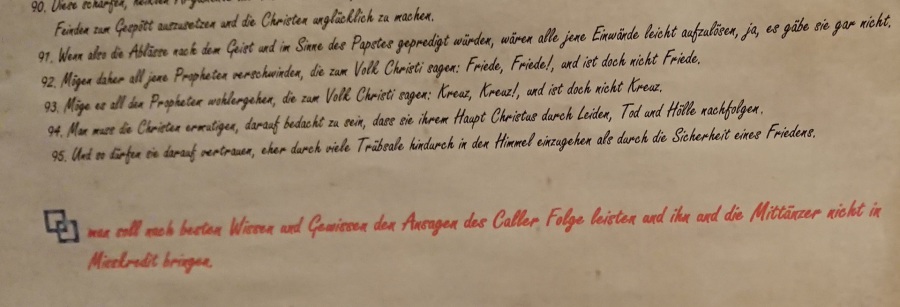 90. Diese scharfen, heiklen
Feinden zum Gespött auszusetzen und die Christen unglücklich zu machen.
91. Wenn also die Ablässe nach dem Geist und im Sinne des Papstes gepredigt würden, wären alle jene Einwände leicht aufzulösen, ja, es gäbe sie gar nicht.
92. Mögen daher all jene Propheten verschwinden, die zum Volk Christi sagen: Friede, Friede!, und ist doch nicht Friede.
93. Möge es all den Propheten wohlergehen, die zum Volk Christi sagen: Kreuz, Kreuz!, und ist doch nicht Kreuz.
94. Man muss die Christen ermutigen, darauf bedacht zu sein, dass sie ihrem Haupt Christus durch Leiden, Tod und Hölle nachfolgen.
95. Und so dürfen sie darauf vertrauen, eher durch viele Trübsale hindurch in den Himmel einzugehen als durch die Sicherheit eines Friedens.
man soll nach besten Wissen und Gewissen den Ansagen des Caller Folge leisten und ihn und die Mittänzer nicht in
Misskredit bringen.